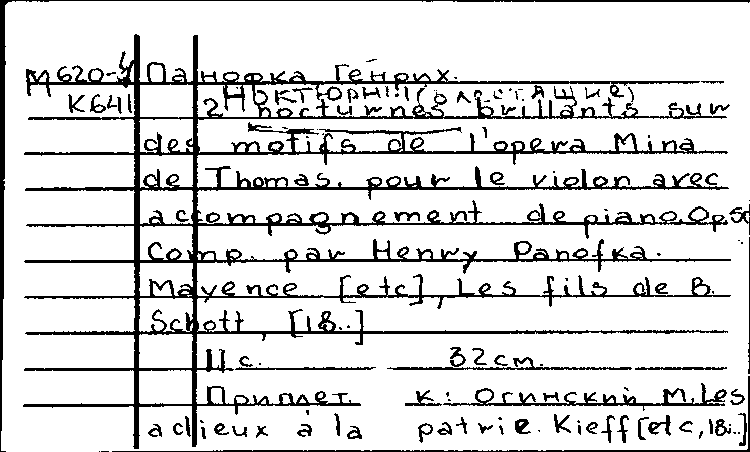 М620-4 Панофка Генрих.
К641 Ноктюрны (блестящие)
2 nocturnes brillants sur
des motifs de l'opera Mina
de Thomas. pour le violon avec
accompagnement de piano. Op. 50
Comp. par Henry Panofka.
Mayence [etc], Les fils de B.
Schott, [18..]
11 с. 32 cm.
Приплет. к: Огинский, М. Les
adieux à la patrie. Kieff [etc, 18..]